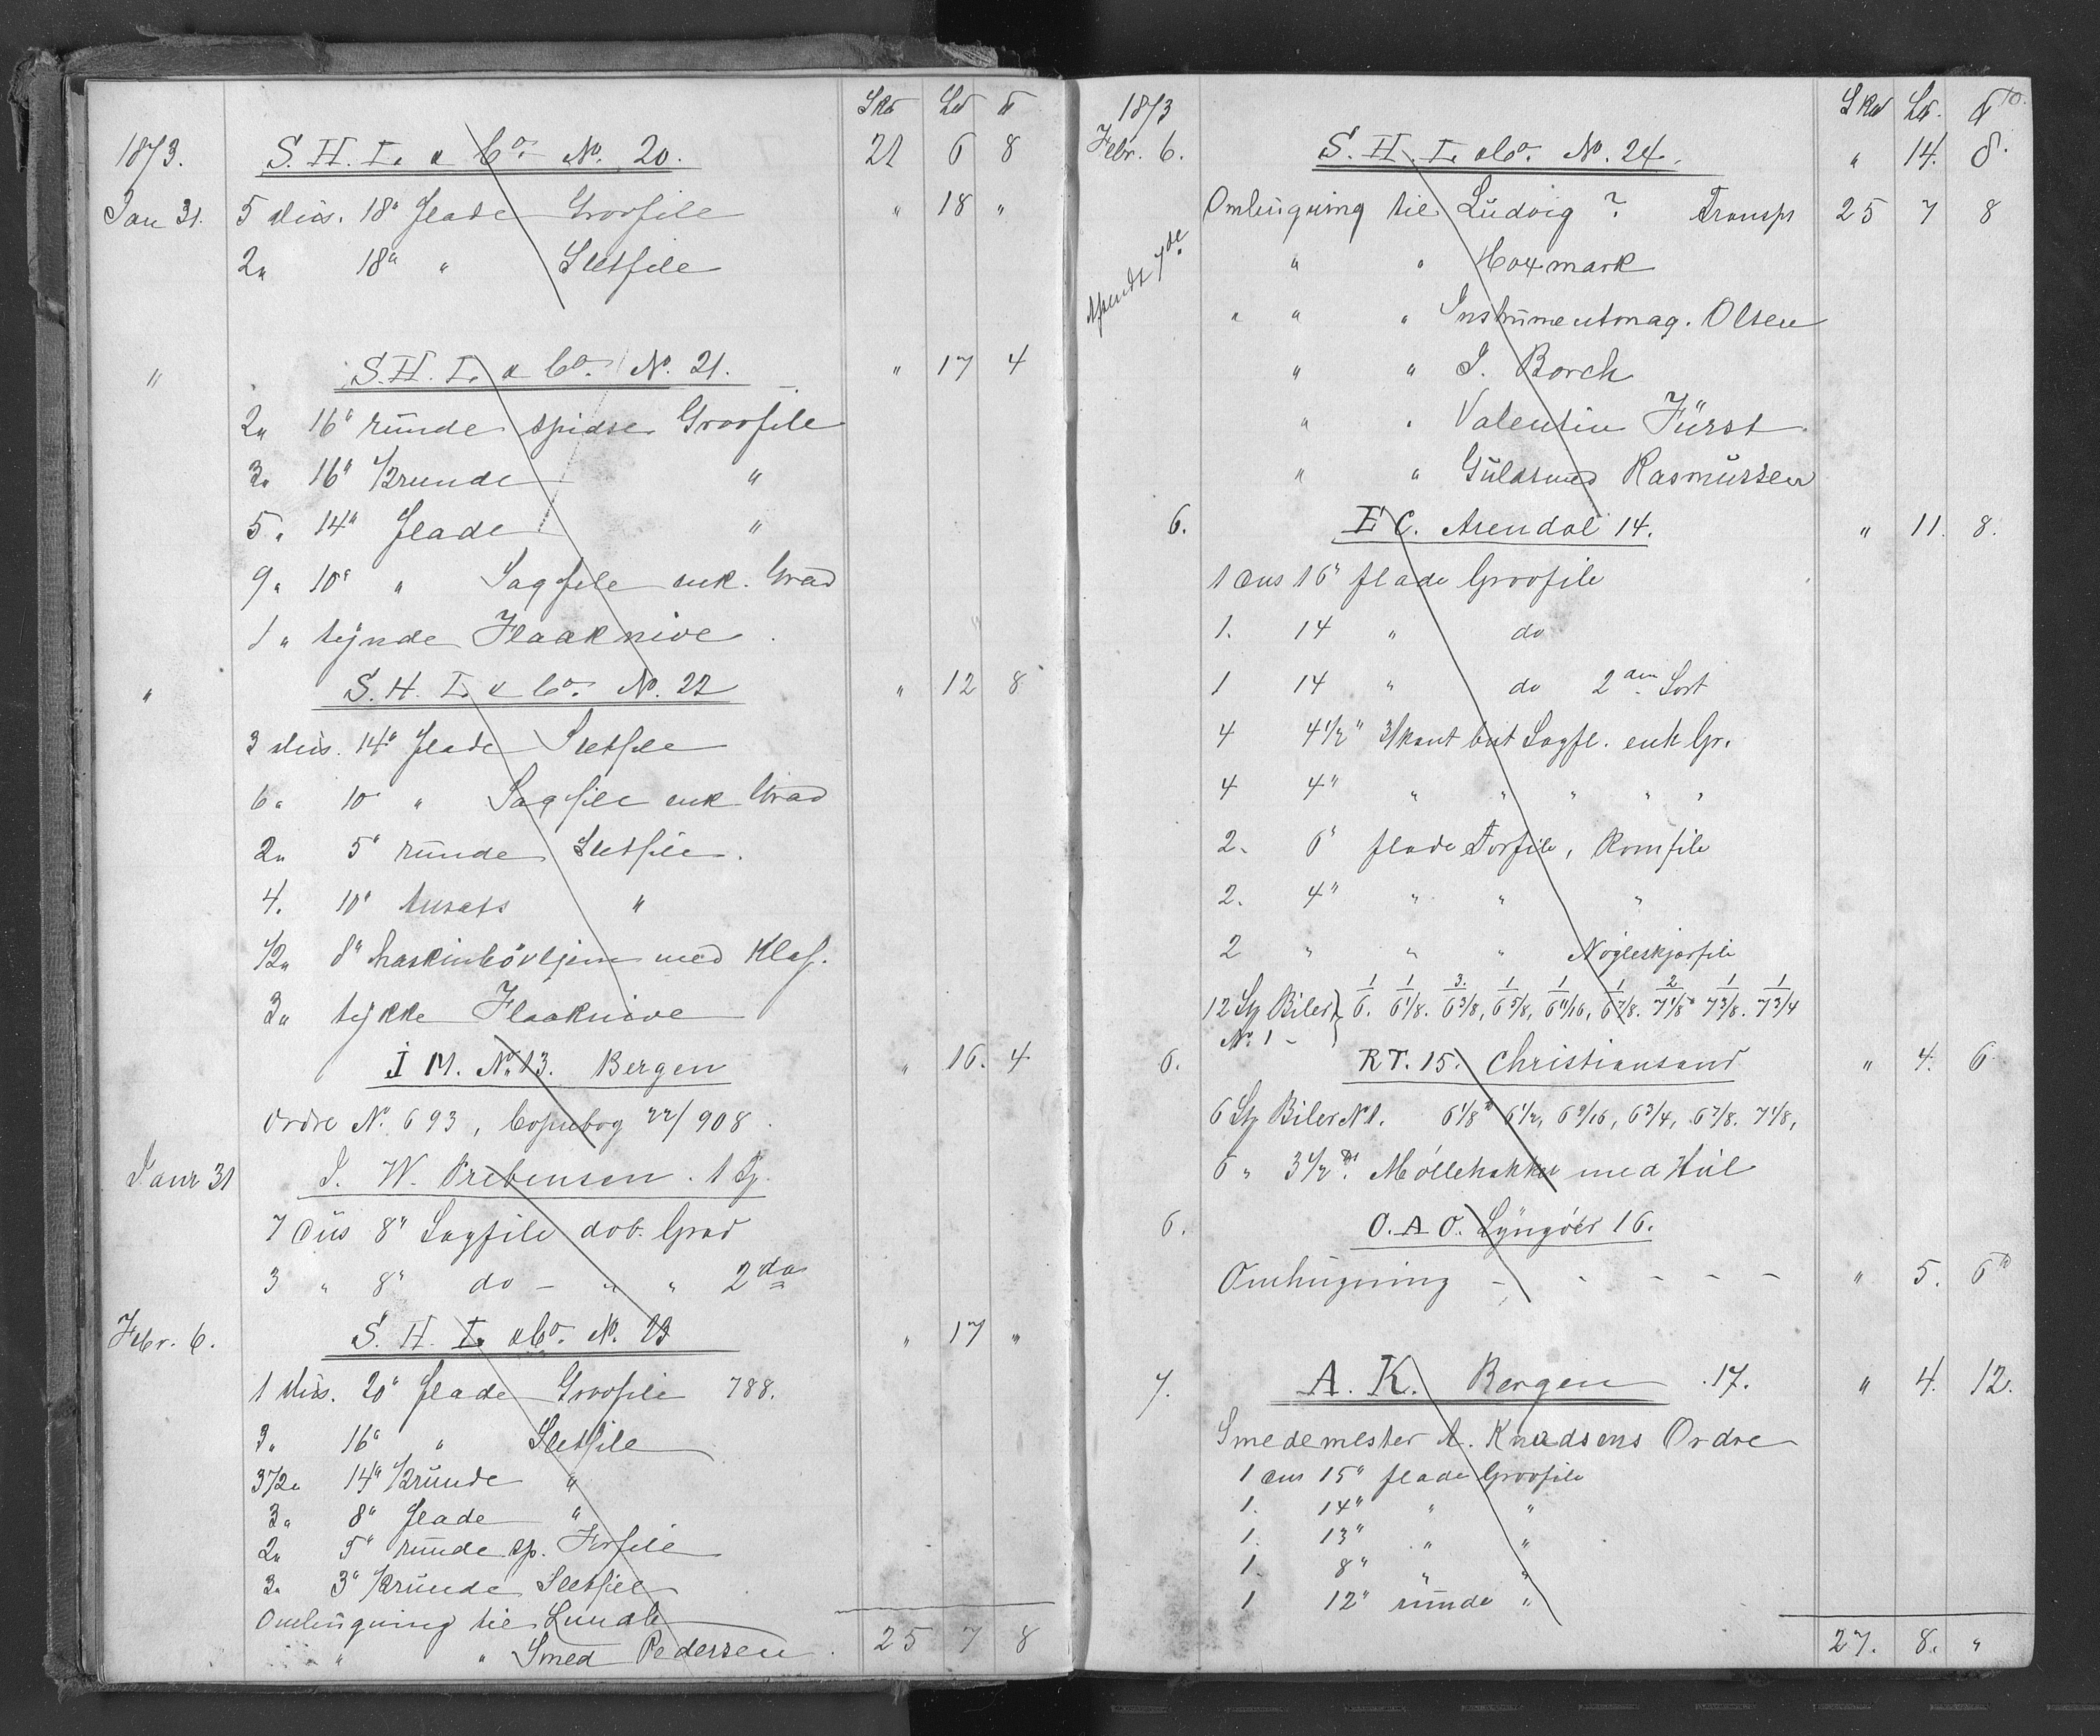 Skd Ld ℔
1873. S. H. L. & Co. No. 20. 22 6 8
Jan 31. 5 dus. 18" flade Groofile " 18 "
2 " 18" " Sletfile
" S. H. L. & Co. No. 21. " 17 4
2 " 16" runde spidse Groofile
3 " 16" 1/2runde "
5 " 14" flade "
9 " 10" " Sagfile enk. Grad
1 " tynde Flaaknive
" S. H. L. & Co. No. 22 " 12 8
3 dus. 14" flade Sletfile
6 " 10 " Sagfile enk Grad
2 " 5" runde Sletfile.
4. 10" "
1/2 " 8" med Klaf.
3 " tykke Flaaknive
I M. No. 13. Bergen " 16. 4
Ordre No. 693, Copiebog 22/908.
Janr 31 J. W. Prebensen. 1
7 Dus 8" Sagfile dob. Grad
3 " 8" do - " " 2da
Febr. 6. S. H. L. & Co. No. 23 " 17 "
1 dus. 20" flade Groofile 788.
3 " 16" " Sletfile
3 1/2 " 14" 1/2runde "
3 " 8" flade "
2 " 5" runde sp. Forfile
3 " 3" 1/2runde Sletfile
Omhugning til Lunde
" " Smed Pedersen. 25 7 8
1873 Skd Ld. ℔
Febr. 6. S. H. L. & Co. No. 24. " 14. 8.
Omhugning til Ludvig ? Transp 25 7 8
Afsendt 7de
" " Hoxmark
" " " Instrumentmag. Olsen
" " J. Borch
" " Valentin Fürst
" " Guldsmed Rasmussen
6. E C. Arendal 14. " 11. 8.
1 Dus 16" flade Groofile
1. 14 " do
1 14 " do 2den Sort
4 4 1/2" 3/kant but Sagfl. enk Gr.
4 4" " " " " "
2. 6" flade Forfile, Romfile
2. 4" " " "
2 " " " Nögleskjærfile
12 Stk Biler 1/6. 1/6 1/8. 3/6 3/8, 1/6 5/8, 1/6 11/16, 1/6 7/8. 2/7 1/8" 1/7 3/8. 1/7 3/4
No 1 -
6. RT. 15. Christiansand " 4. 6
6 Stk Biler No 1. 6 1/8" 6 1/2, 6 9/16, 6 3/4, 6 7/8. 7 1/8,
6 " 3 1/2 ℔. Möllehakker med Hul
6. O. A O. Lyngöer 16.
Omhugning - - - - - " 5. 6"
7. A. K. Bergen 17. " 4. 12.
Smedemester A. Knudsens Ordre
1 Dus 15" flade Groofile
1. 14" " "
1. 13" " "
1. 8" " "
1 12" runde "
27. 8. "